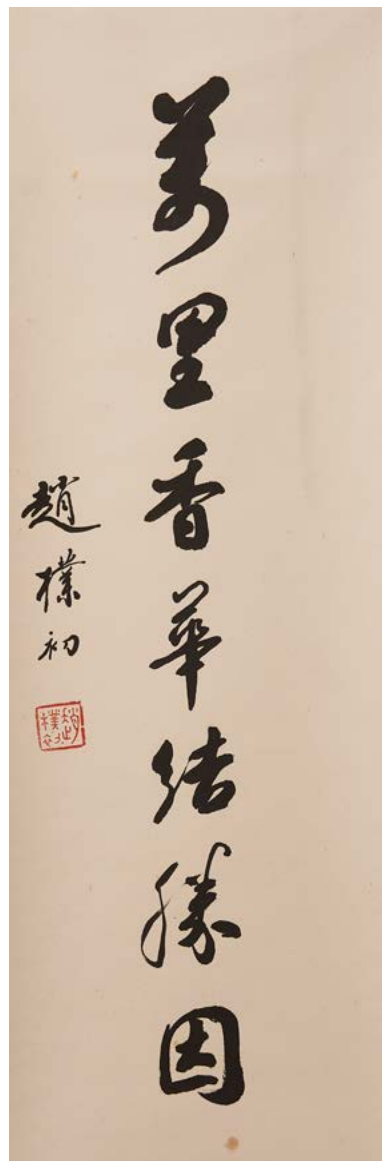 萬里香華結勝因
趙樸初
趙樸初